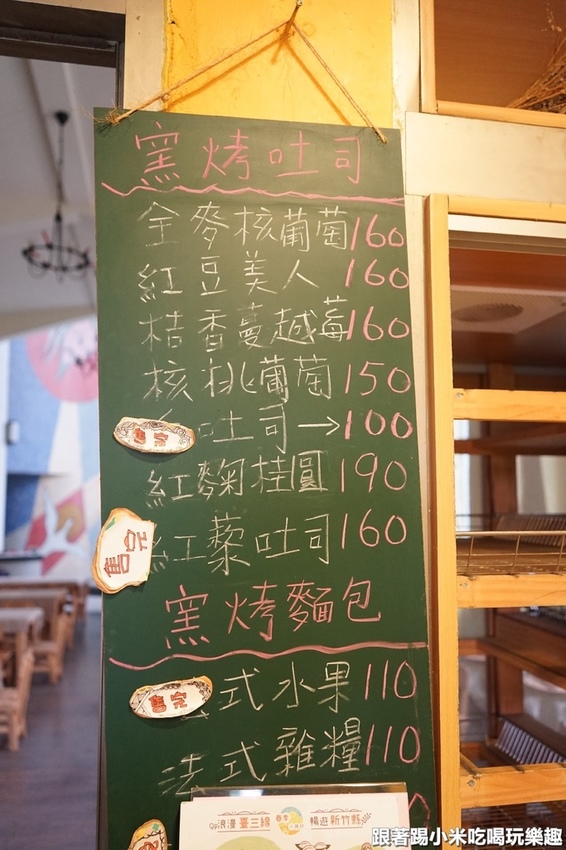 窯烤吐司
全麥核葡萄160
紅豆美人160
桔香蔓越莓160
核桃葡萄150
售完
吐司→100
紅麴桂圓190
售完
紅藜吐司160
窯烤麵包
售完
式水果110
法式雜糧110
浪漫臺三線
暢遊新竹縣
跟著踢小米吃喝玩樂趣